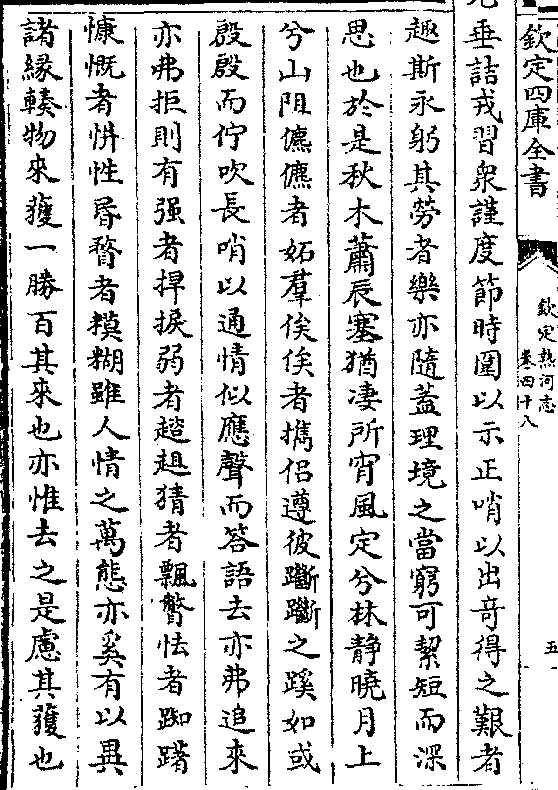 欽定四庫全書
欽定熱河志
卷四十八
五
垂詰戎習衆謹度節時圍以示正哨以出奇得之艱者
趣斯永躬其勞者樂亦隨蓋理境之當窮可絜短而深
思也於是秋木蕭辰塞猶凄所宵風定兮林靜曉月上
兮山阻儦儦者妬羣俟俟者擕侣遵彼𨇨𨇨之蹊如或
殷殷而佇吹長哨以通情似應聲而答語去亦弗追來
亦弗拒則有强者捍掞弱者趦趄猜者飄瞥怯者踟躇
慷慨者怑性昬瞀者糢糊雖人情之萬態亦奚有以異
諸緣輳物來獲一勝百其來也亦惟去之是慮其獲也